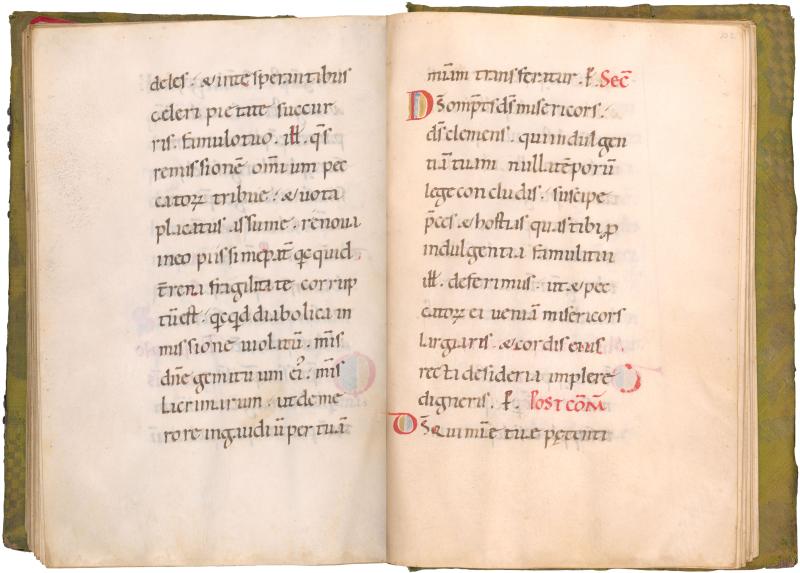 deles. & inte sperantibus
celeri pietate succur
ris. famulotuo. ill. q̄s
remissionē om̄ium pec
catorꝝ tribue. & uota
placatus assume. renoua
in eo piissime pat̄ qcquid
t̄rena fragilitate corrup
tū est. qcqd diabolica in
missione uiolatū. mis̄
dn̄e gemituum ei'. mis̄
lacrimarum. ut deme
rore in gaudiū per tuā
102
mīam transferatur. ꝑ. Sec̄
Ds̄ om̄pt̄s ds̄ misericors.
ds̄ clemens. qui indulgen
tiā tuam nulla tēporū
lege concludis. suscipe
p̄ces & hostias quas tibi ꝓ
indulgentia famuli tui
ill. deferimus. ut & pec
catorꝝ ei ueniā misericors
largiaris. & cordis eius
recti desideria implere
digneris. ꝑ. Post com̄
Ds̄ qui mīe tue pętenti